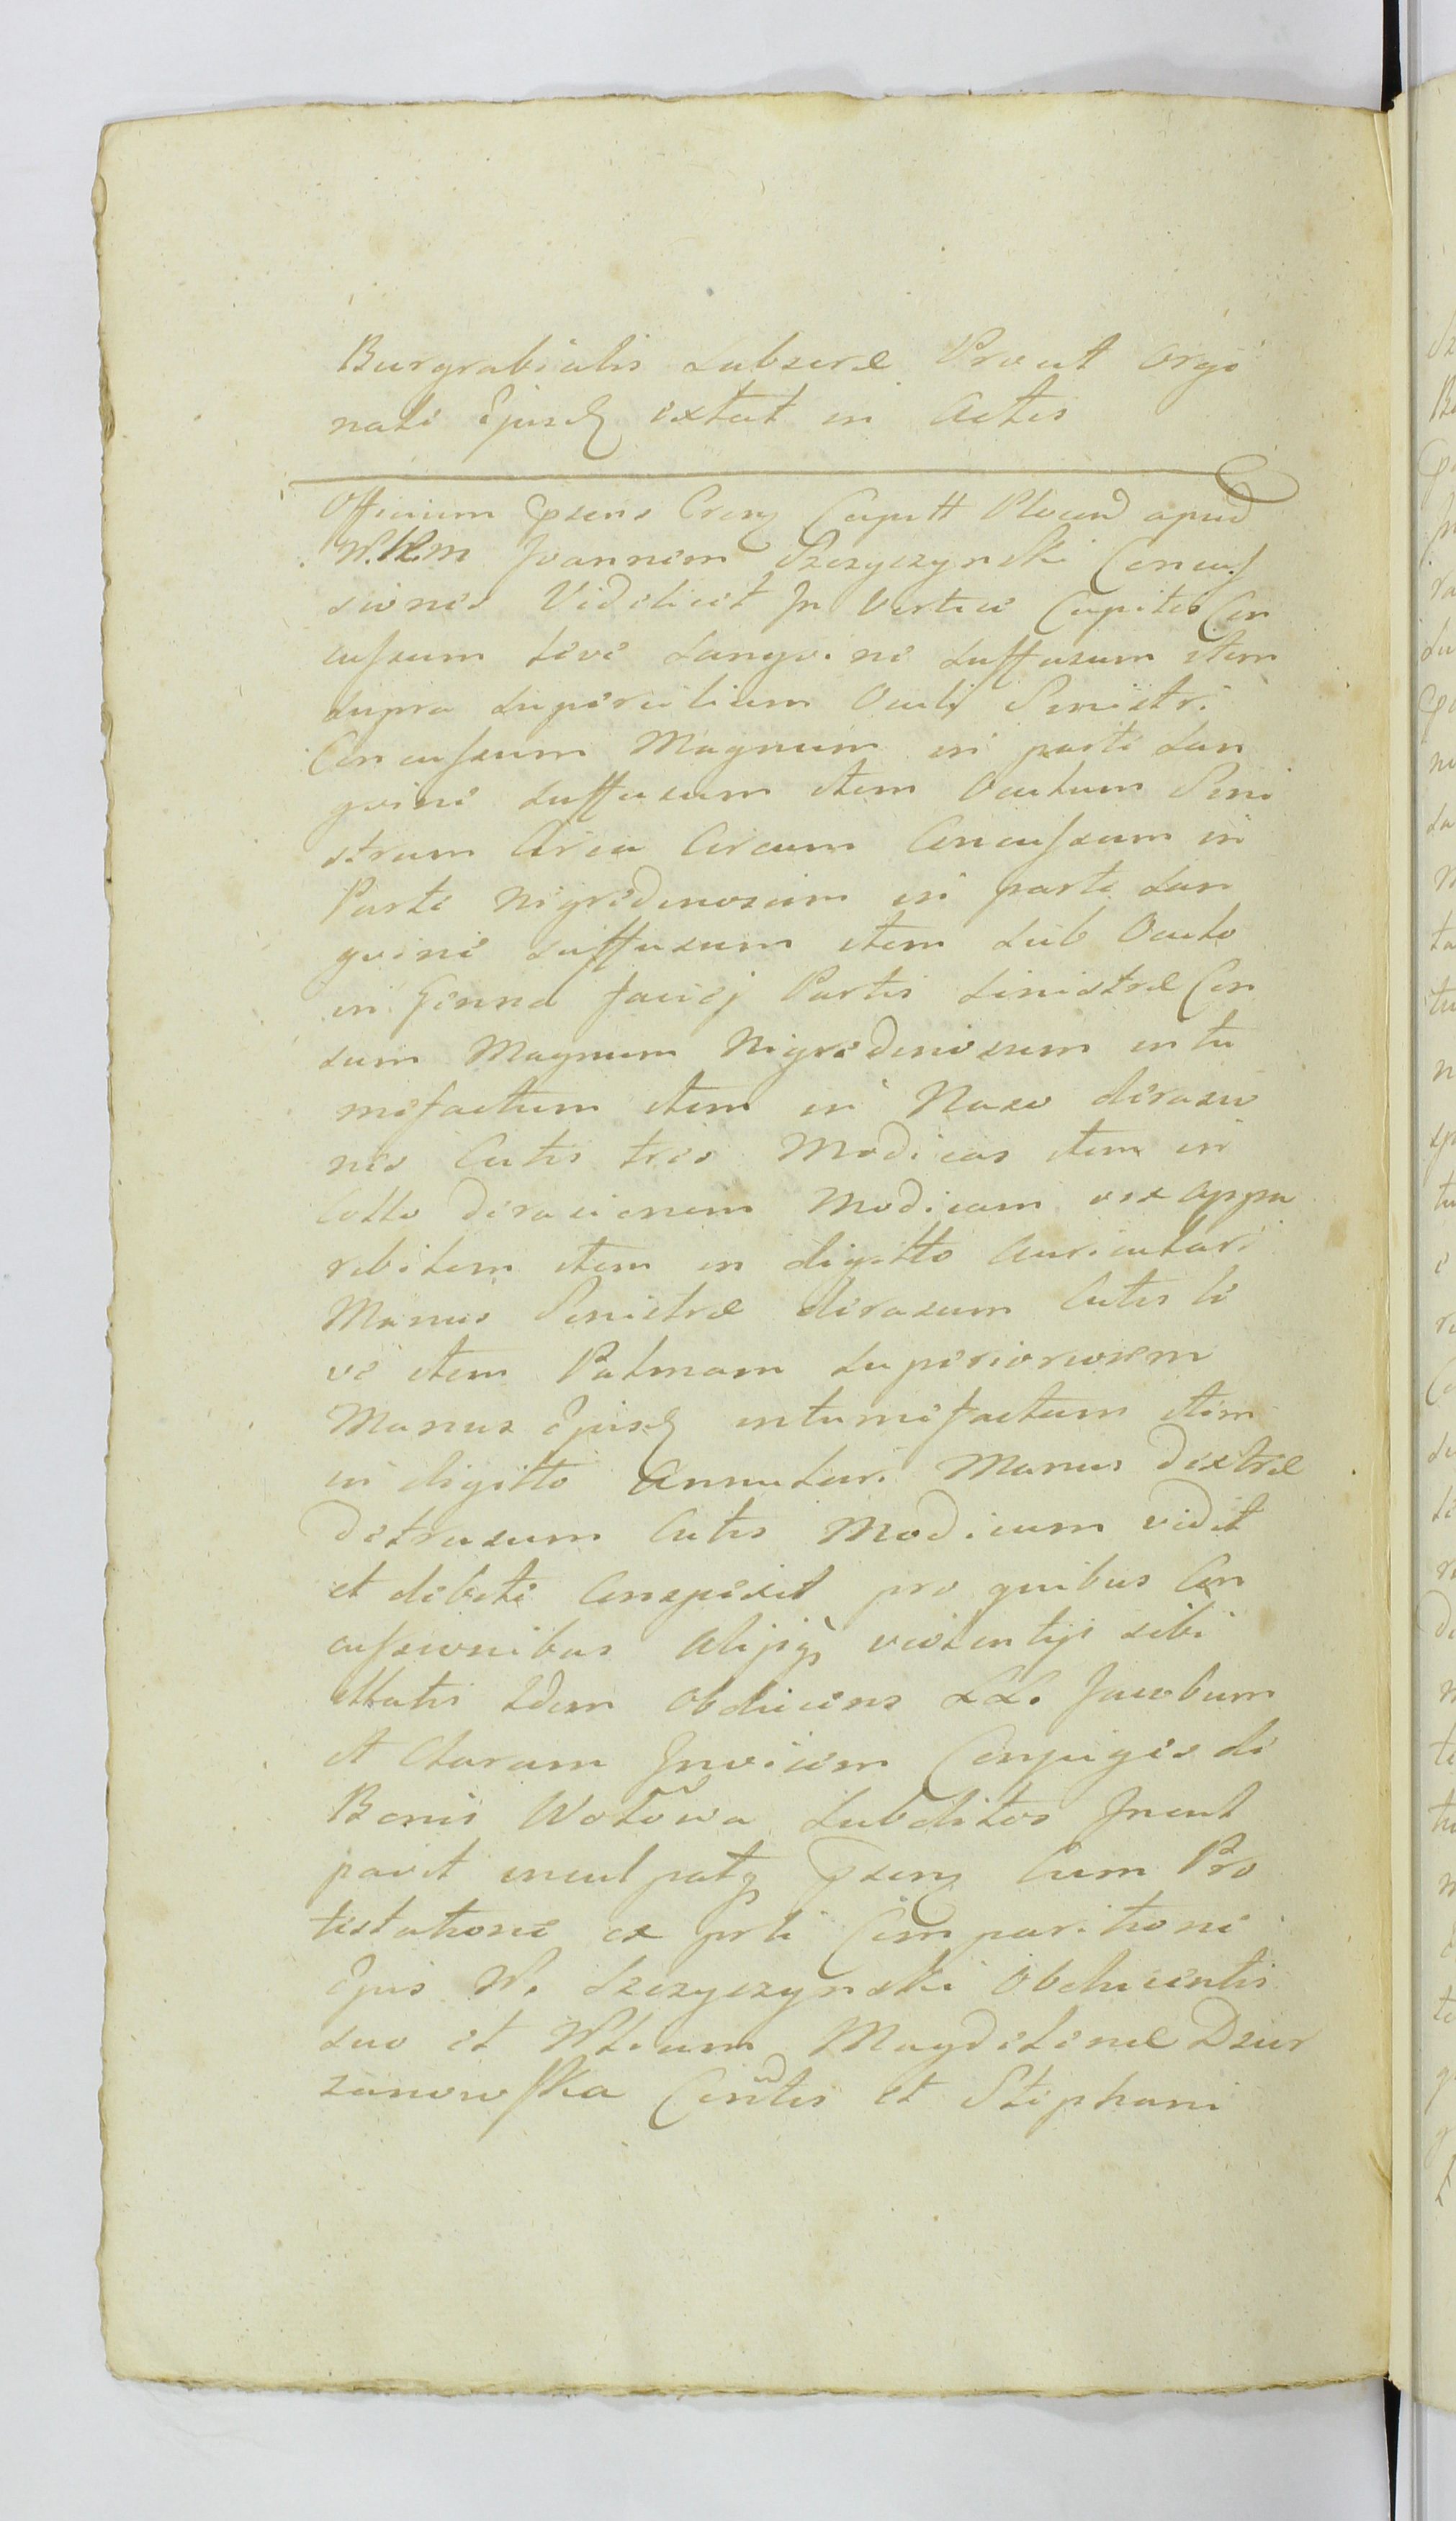 Burgrabialis subseræ Prout Orygi
nale Ejusd extat in Actis
Officium Psens Crens Capitt Plocen apud
W. Joannem Szczyczynski Concus
siones Videlicet In Vertice Capitis Con
cussum leve sangvine suffusum item
supra supercilium Oculi Sinistri
Concussum Magnum in parte san
gvine suffusum item Oculum Sini
strum Circa Circum Concussum in
Parte nigredinosum in parte san
gvine suffusum item sub Oculo
in Genna faciej Partis sinistræ Con
sum Magnum Nigredinosum intu
mefactum item in Naso derasio
nes Cutis tres Modicas item in
Collo derasionem Modicam vix appa
rebilem item in digitto Auriculari
Manus Sinistræ derasum Cutis le
ve item Palmam superiorem
Manus Ejusd intumefactum item
in digitto Annulari Manus dextræ
detrusum Cutis Modicum vidit
et debite Conspexit pro quibus Con
cussionibus alijsq violentijs sibi
illatis Idem Obducens LL. Jacobum
et Claram Invicem Conjuges de
Bonis Wolowa subditos Incul
pavit inculpatq Psens Cum Pro
testatione ex prte Comparitione
Ejus W. Szczyczynski Obducentis
suo et Magdalenæ Dzier
zanowska Contis et Stephani